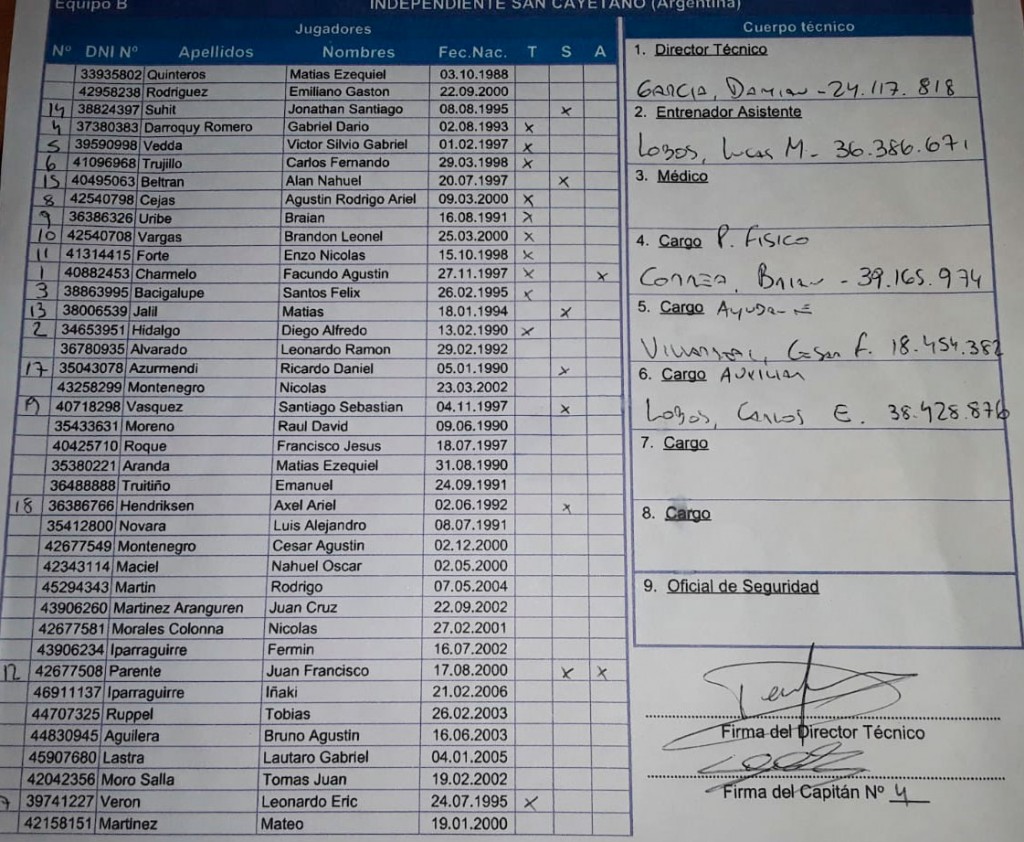 Equipo B INDEPENDIENTE SAN CAYETANO (Argentina)
Jugadores
Nº DNI Nº Apellidos Nombres Fec.Nac. T S A
33935802 Quinteros Matias Ezequiel 03.10.1988
42958238 Rodriguez Emiliano Gaston 22.09.2000
14 38824397 Suhit Jonathan Santiago 08.08.1995 x
4 37380383 Darroquy Romero Gabriel Dario 02.08.1993 x
5 39590998 Vedda Victor Silvio Gabriel 01.02.1997 x
6 41096968 Trujillo Carlos Fernando 29.03.1998 x
15 40495063 Beltran Alan Nahuel 20.07.1997 x
8 42540798 Cejas Agustin Rodrigo Ariel 09.03.2000 x
9 36386326 Uribe Braian 16.08.1991 x
10 42540708 Vargas Brandon Leonel 25.03.2000 x
11 41314415 Forte Enzo Nicolas 15.10.1998 x
1 40882453 Charmelo Facundo Agustin 27.11.1997 x x
3 38863995 Bacigalupe Santos Felix 26.02.1995 x
13 38006539 Jalil Matias 18.01.1994 x
2 34653951 Hidalgo Diego Alfredo 13.02.1990 x
36780935 Alvarado Leonardo Ramon 29.02.1992
17 35043078 Azurmendi Ricardo Daniel 05.01.1990 x
43258299 Montenegro Nicolas 23.03.2002
40718298 Vasquez Santiago Sebastian 04.11.1997 x
35433631 Moreno Raul David 09.06.1990
40425710 Roque Francisco Jesus 18.07.1997
35380221 Aranda Matias Ezequiel 31.08.1990
36488888 Truitiño Emanuel 24.09.1991
18 36386766 Hendriksen Axel Ariel 02.06.1992 x
35412800 Novara Luis Alejandro 08.07.1991
42677549 Montenegro Cesar Agustin 02.12.2000
42343114 Maciel Nahuel Oscar 02.05.2000
45294343 Martin Rodrigo 07.05.2004
43906260 Martinez Aranguren Juan Cruz 22.09.2002
42677581 Morales Colonna Nicolas 27.02.2001
43906234 Iparraguirre Fermin 16.07.2002
12 42677508 Parente Juan Francisco 17.08.2000 x x
46911137 Iparraguirre Iñaki 21.02.2006
44707325 Ruppel Tobias 26.02.2003
44830945 Aguilera Bruno Agustin 16.06.2003
45907680 Lastra Lautaro Gabriel 04.01.2005
42042356 Moro Salla Tomas Juan 19.02.2002
7 39741227 Veron Leonardo Eric 24.07.1995 x
42158151 Martinez Mateo 19.01.2000
Cuerpo técnico
1. Director Técnico
GARCIA, DAMIAN - 24.117.818
2. Entrenador Asistente
LOBOS, LUCAS M. - 36.386.671
3. Médico
4. Cargo P. FISICO
CORREA, BRIAN - 39.165.974
5. Cargo AYUDANTE
VILLARREAL, CESAR F. 18.454.382
6. Cargo AUXILIAR
LOBOS, CARLOS E. 38.428.876
7. Cargo
8. Cargo
9. Oficial de Seguridad
Firma del Director Técnico
Firma del Capitán Nº 4